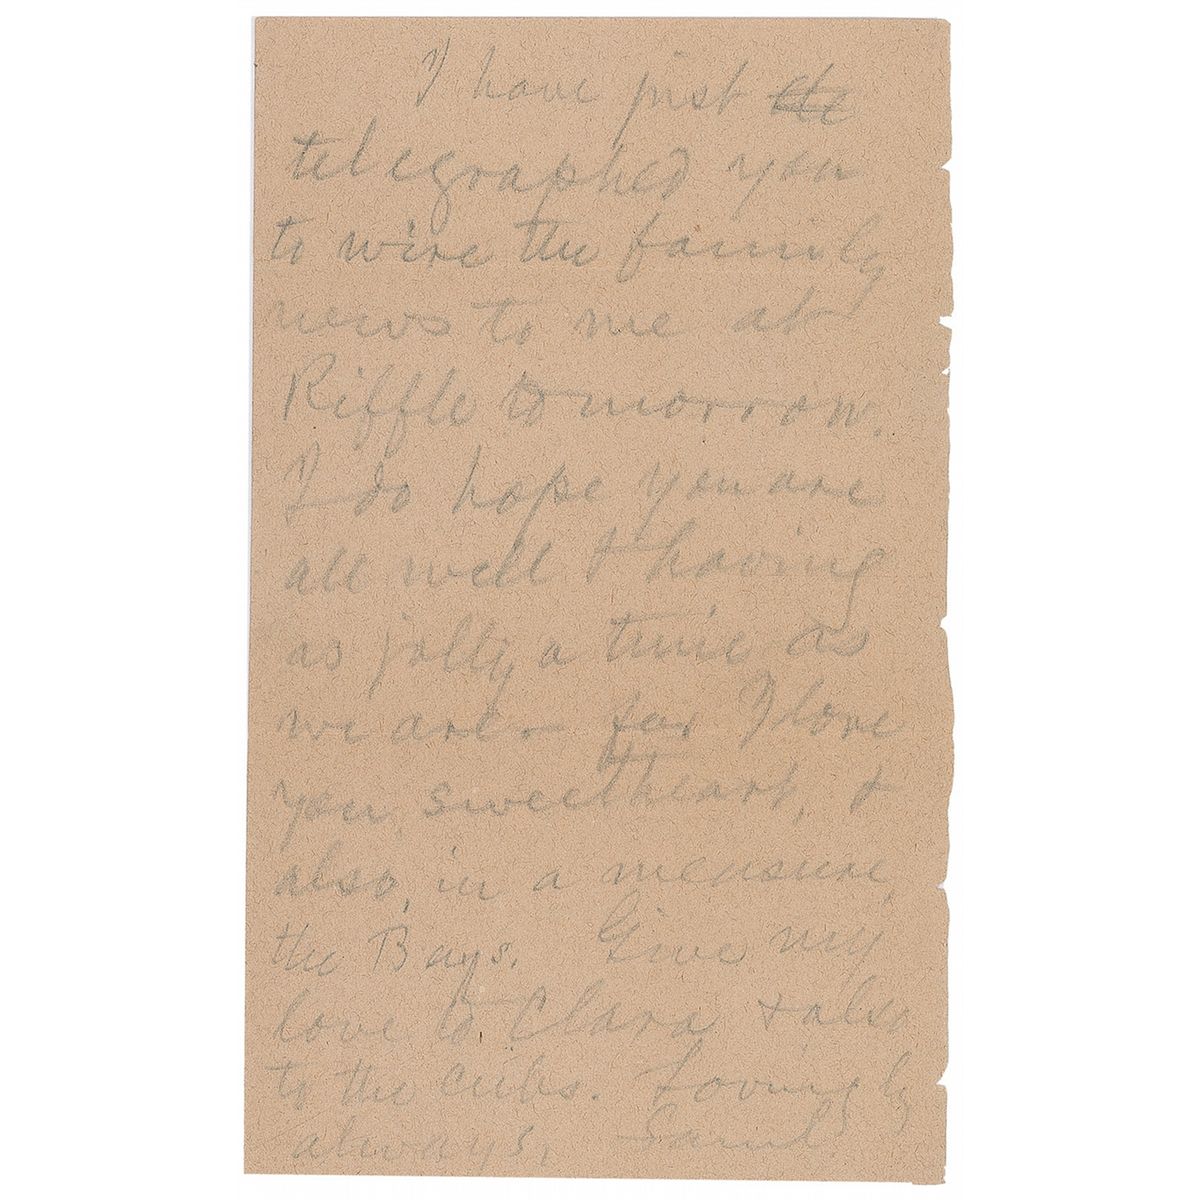 I have just the
telegraphed you
to wire the family
news to me at
Riffle tomorrow.
I do hope you are
all well & having
as jolly a time as
we are – for I love
you, sweetheart, &
also, in a measure,
the Bays. Give my
love to Clara & also
to the cubs. Lovingly
always, Saml